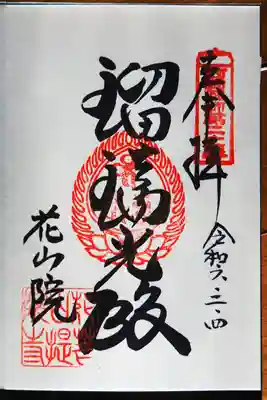 奉拝
令和六.三.四
瑠璃光殿
花山院